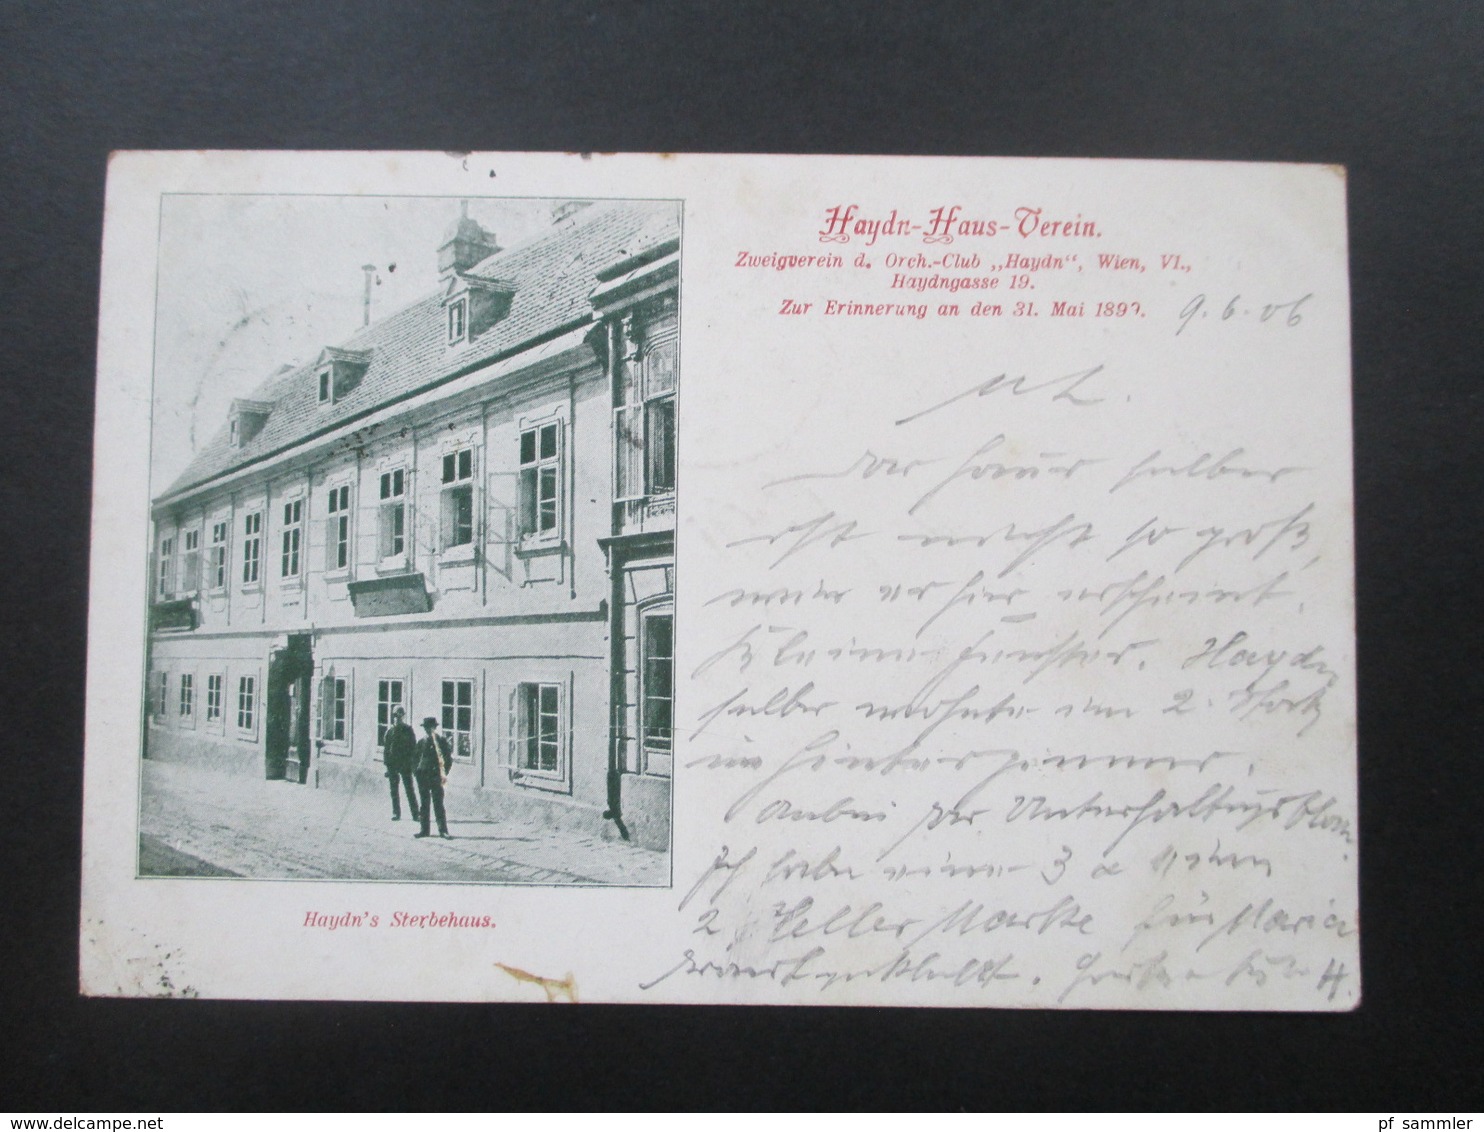 Haydn-Haus-Verein.
Zweigverein d. Orch.-Club „Haydn“, Wien, VI.,
Haydngasse 19.
Zur Erinnerung an den 31. Mai 1899.
9.6.06
Das Haus selber
ist nicht so groß,
wie er hier erscheint.
Kleine Fenster. Haydn
selber wohnte im 2. Stock
im Hinterzimmer.
Anbei der Unterhaltungsblatt.
Ich habe eine 3 a
2 Heller Marke für Maria
Haydn's Sterbehaus.
www.delcampe.net
pf_sammler